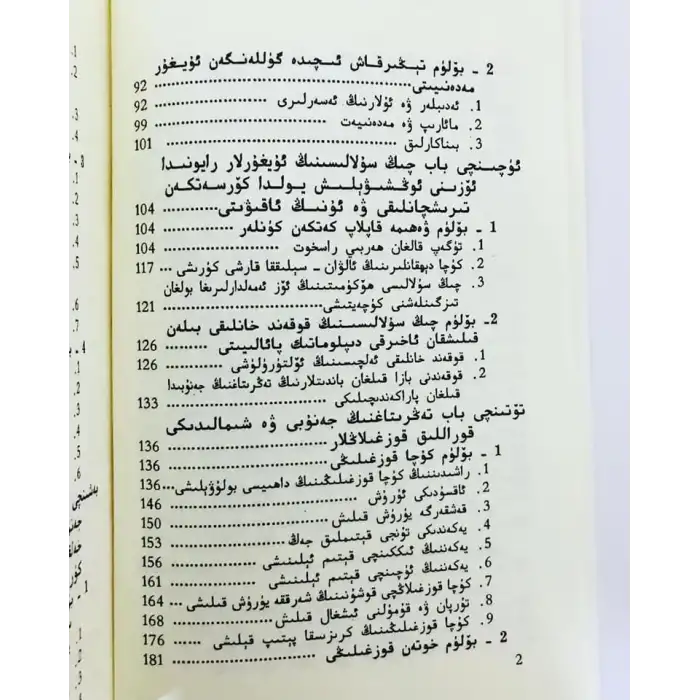 2 - بۆلۈم تېڭىرقاش ئىچىدە گۈللەنگەن ئۇيغۇر
مەدەنىيىتى ........ 92
1. ئەدىبلەر ۋە ئۇلارنىڭ ئەسەرلىرى ........ 92
2. مائارىپ ۋە مەدەنىيەت ........ 99
3. بىناكارلىق ........ 101
ئۈچىنچى باب چىڭ سۇلالىسىنىڭ ئۇيغۇرلار رايونىدا
ئۆزىنى ئوڭشىۋېلىش يولىدا كۆرسەتكەن
تىرىشچانلىقى ۋە ئۇنىڭ ئاقىۋىتى ........ 104
1 - بۆلۈم ۋەھىمە قاپلاپ كەتكەن كۈنلەر ........ 104
1. تۈگەپ قالغان ھەربىي راسخوت ........ 104
2. كۇچا دېھقانلىرىنىڭ ئالۋان - سېلىققا قارشى كۈرىشى ... 117
3. چىڭ سۇلالىسى ھۆكۈمىتىنىڭ ئۆز ئەمەلدارلىرىغا بولغان
تىزگىنلەشنى كۈچەيتىشى ........ 121
2- بۆلۈم چىڭ سۇلالىسىنىڭ قوقەند خانلىقى بىلەن
قىلىشقان ئاخىرقى دىپلوماتىك پائالىيىتى ........ 126
1. قوقەند خانلىقى ئەلچىسىنىڭ ئۆلتۈرۈلۈشى ........ 126
2. قوقەندنى بازا قىلغان باندىتلارنىڭ تەڭرىتاغنىڭ جەنۇبىدا
قىلغان پاراكەندىچىلىكى ........ 133
تۆتىنچى باب تەڭرىتاغنىڭ جەنۇبى ۋە شىمالىدىكى
قوراللىق قوزغىلاڭلار ........ 136
1 - بۆلۈم كۇچا قوزغىلىڭى ........ 136
1. راشىدىننىڭ كۇچا قوزغىلىڭىنىڭ داھىيسى بولۇۋېلىشى ... 136
2. ئاقسۇدىكى ئۇرۇش ........ 146
3. قەشقەرگە يۈرۈش قىلىش ........ 150
4. يەكەندىكى تۇنجى قېتىملىق جەڭ ........ 153
5. يەكەننىڭ ئىككىنچى قېتىم ئېلىنىشى ........ 156
6. يەكەننىڭ ئۈچىنچى قېتىم ئېلىنىشى ........ 161
7. كۇچا قوزغىلاڭچى قوشۇنىنىڭ شەرققە يۈرۈش قىلىشى ... 164
8. تۇرپان ۋە قۇمۇلنى ئىشغال قىلىش ........ 168
9. كۇچا قوزغىلىڭىنىڭ كرىزىسقا پېتىپ قېلىشى ........ 176
2 - بۆلۈم خوتەن قوزغىلىڭى ........ 181
2